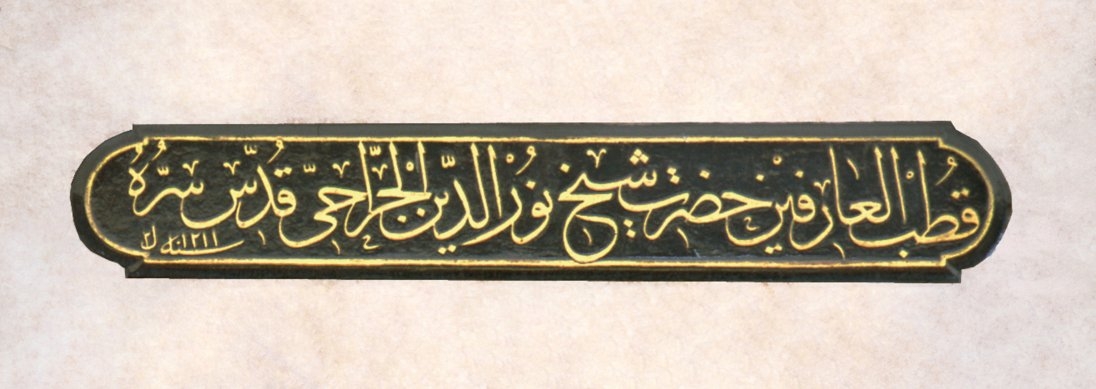 قطب العارفين حضرت شيخ نور الدين الجراحى قدس سره
سنه ١٢١١